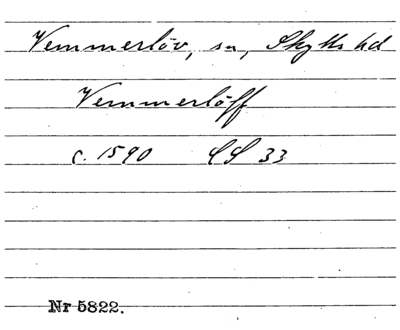 Vemmerlöv, sn, Skytts hd
Vemmerlöff
c. 1590 LS 33
Nr 5822.